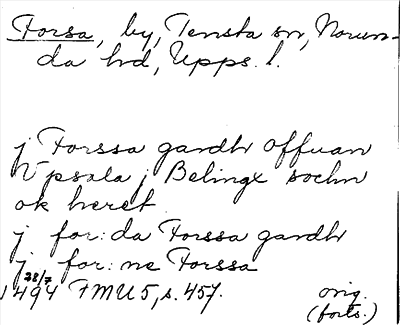 Forsa, by, Tensta sn, Norun-
da hd, Upps. l.
j Forssa gardh offuan
Vpsala j Belingx sochn
ok heret
j for:da Forssa gardh
j for:ne Forssa
28/7
1494 FMU 5, s. 457.
orig.
(forts.)